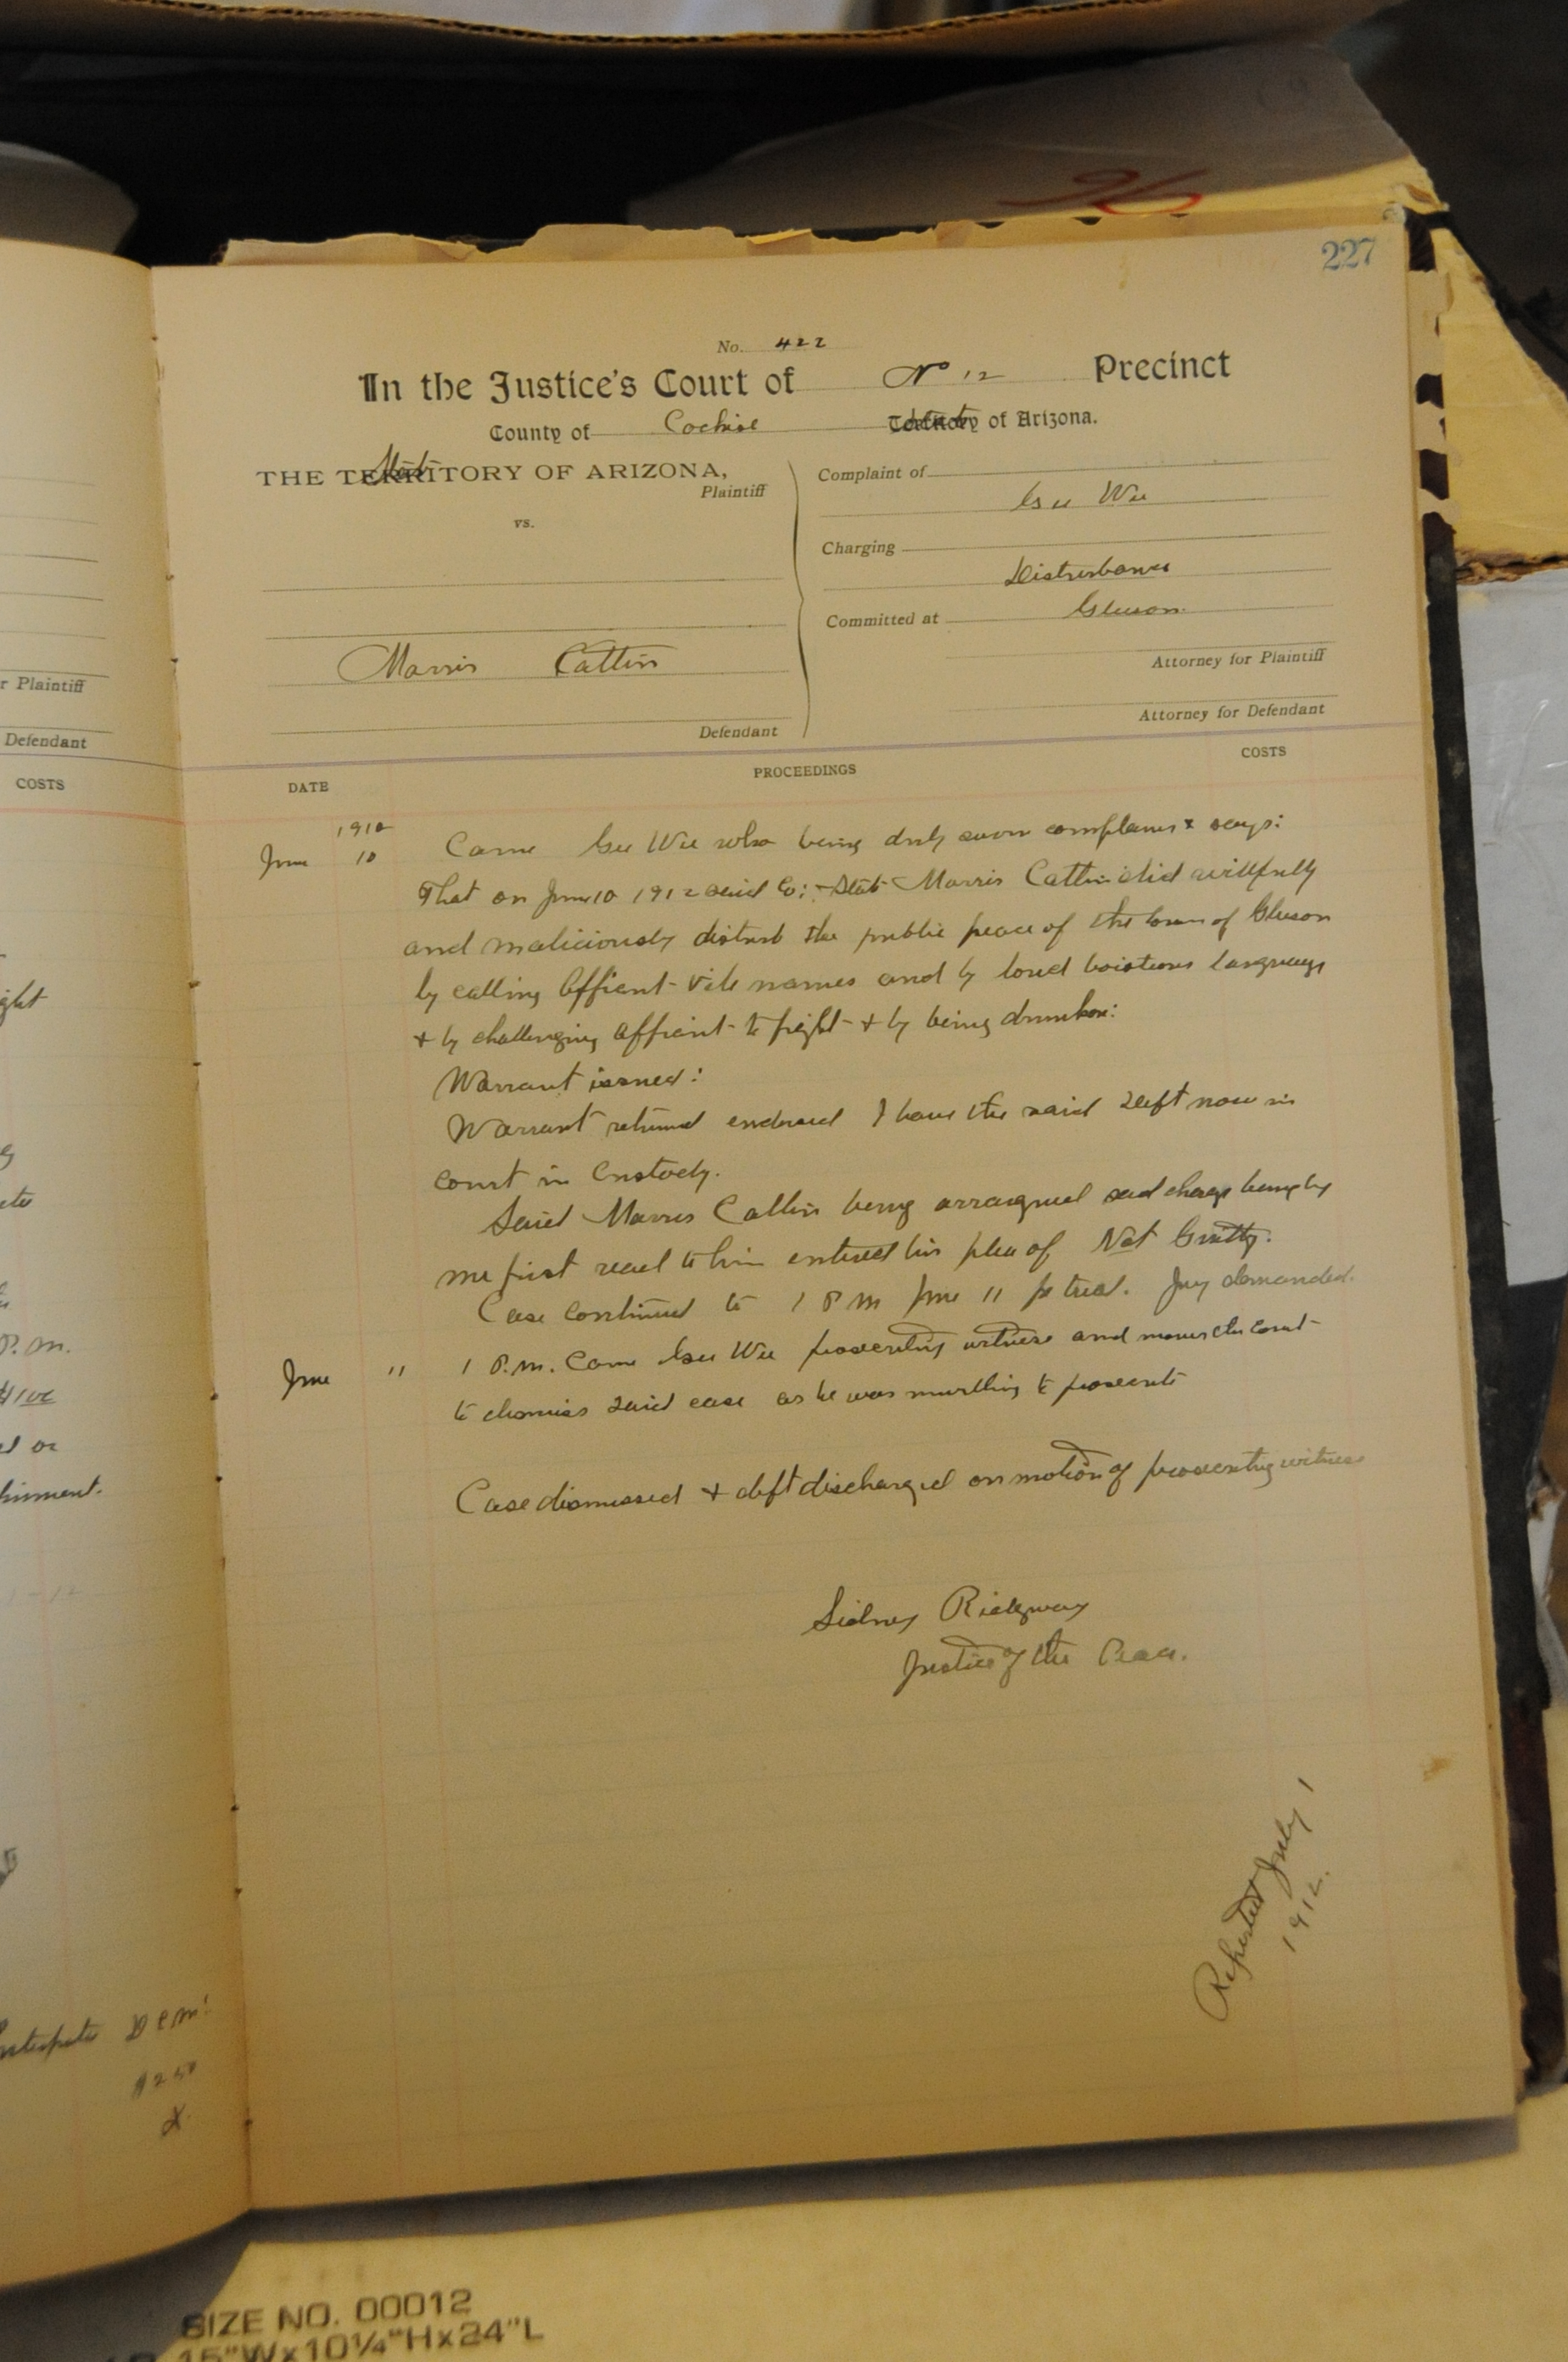 96
227
No. 422
In the Justice's Court of No 12 Precinct
County of Cochise Territory State of Arizona.
THE TERRITORY State OF ARIZONA,
Plaintiff
vs.
Morris Catlin
Defendant
Complaint of
Gee Wee
Charging
Disturbance
Committed at Gleeson
Attorney for Plaintiff
Attorney for Defendant
DATE
PROCEEDINGS
COSTS
1912
June 10 Came Gee Wee who being duly sworn complains & says:
That on June 10 1912 said Co: State Morris Catlin did willfully
and maliciously disturb the public peace of the town of Gleeson
by calling Affiant vile names and by loud boistrous language
& by challenging affiant to fight & by being drunken:
Warrant issued:
Warrant returned endorsed I have the said Deft now in
court in Custody.
Said Morris Catlin being arraigned said charge being by
me first read to him entered his plea of Not Guilty.
Case continued to 1 P M June 11 for trial. Jury demanded.
June 11 1 P.m. Came Gee Wee prosecuting witness and moves the Court
to dismiss said case as he was unwilling to prosecute
Case dismissed & deft discharged on motion of prosecuting witness
Sidney Ridgway
Justice of the Peace.
Reported July 1
1912.
r Plaintiff
Defendant
COSTS
P.m.
$250
SIZE NO. 00012
15"Wx10¼"Hx24"L